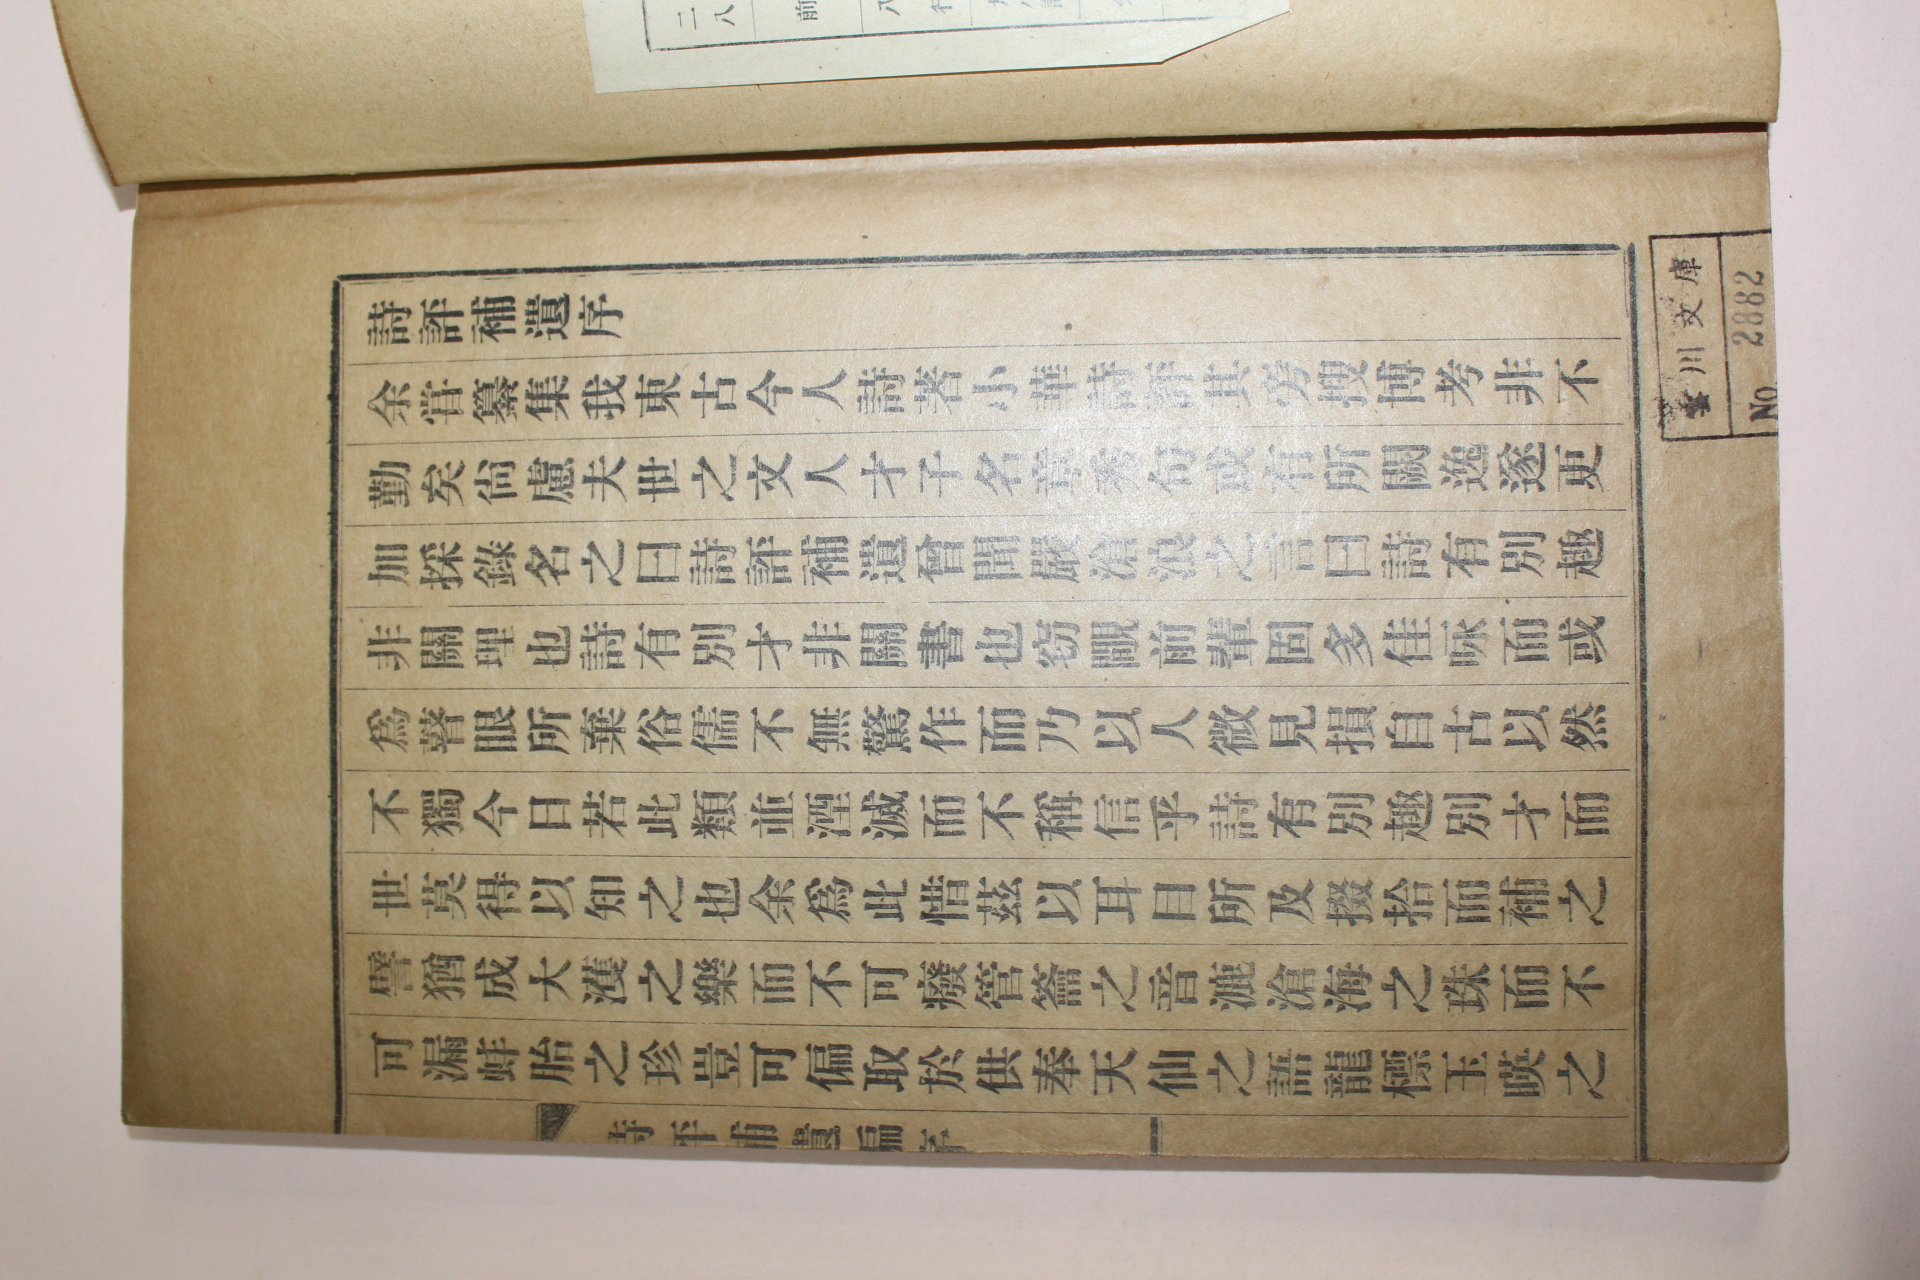 詩評補遺序
余甞纂集我東古今人詩著小華詩評其旁搜博考非不
勤矣尙慮夫世之文人才子名章秀句或有所闕逸遂更
加採錄名之曰詩評補遺曾聞嚴滄浪之言曰詩有別趣
非關理也詩有別才非關書也窃覵前輩固多佳咏而或
爲瞽眼所棄俗儒不無驚作而乃以人微見損自古以然
不獨今日若此類並湮滅而不稱信乎詩有別趣別才而
世莫得以知之也余爲此惜茲以耳目所及掇拾而補之
譬猶成大濩之樂而不可癈管籥之音漉滄海之珠而不
可漏蚌胎之珍豈可偏取於供奉天仙之語龍標玉暎之
詩評補遺編序
川文庫
No 2882